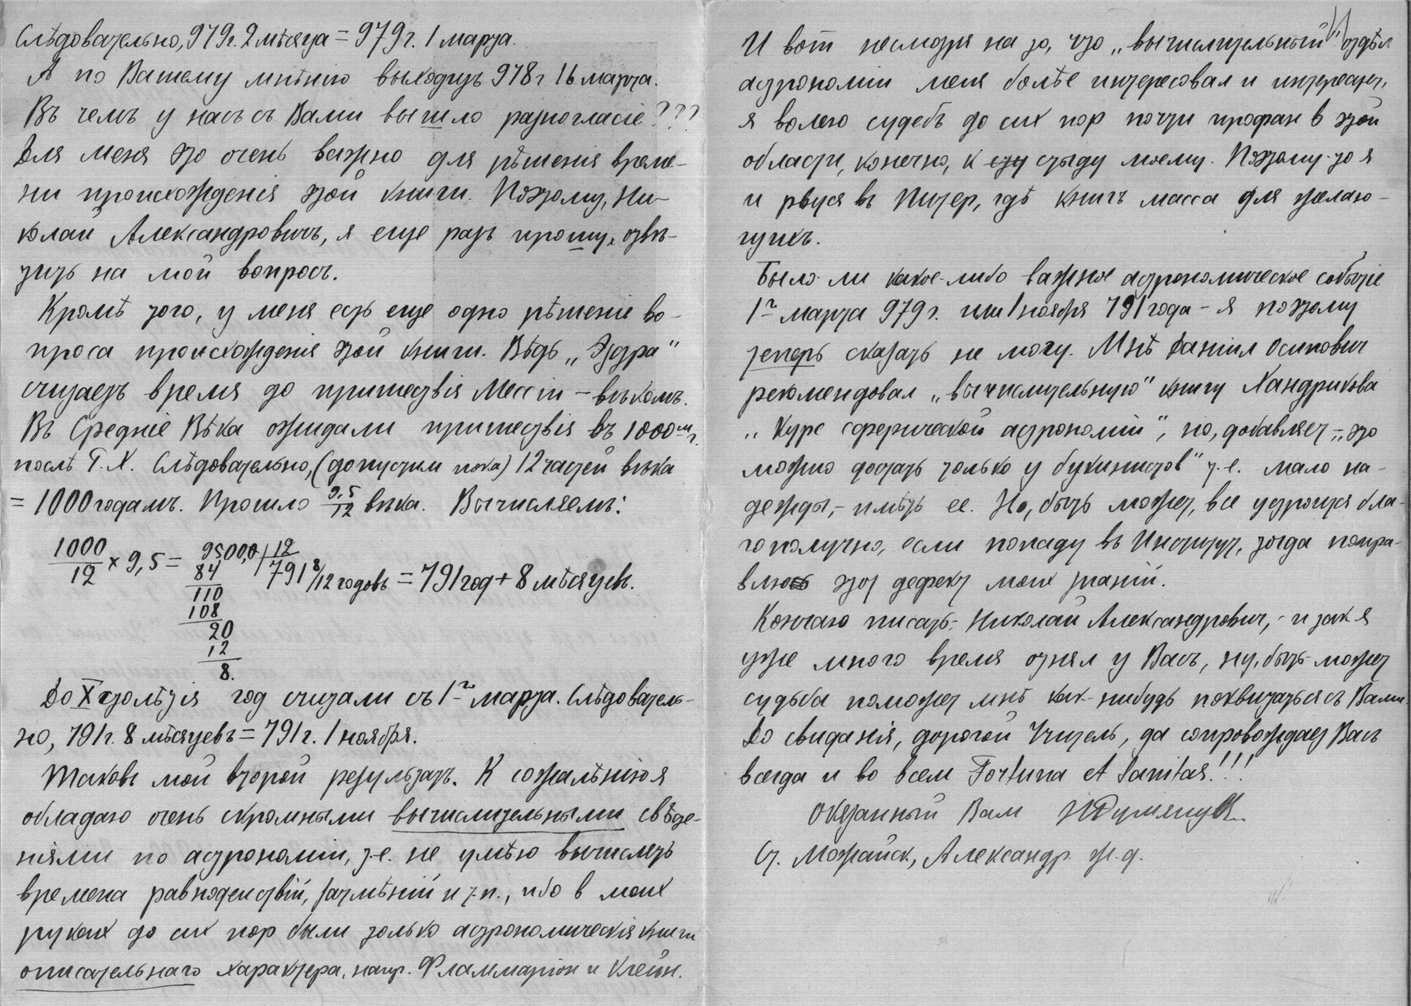 Слѣдовательно, 979г. 2 мѣсяца = 979 г. 1 марта.
А по Вашему мнѣнію выходитъ 978 г 16 марта.
Въ чемъ у насъ съ Вами вышло разногласіе???
Для меня это очень важно для рѣшенія време-
ни происхожденія этой книги. Поэтому, Ни-
колай Александровичъ, я еще разъ прошу отвѣ-
тить на мой вопросъ.
Кромѣ того, у меня есть еще одно рѣшеніе во-
проса происхожденія этой книги. Вѣдь „Эзра"
считаетъ время до пришествія Мессіи – вѣкомъ.
Въ Средніе Вѣка ожидали пришествія въ 1000мъ г.
послѣ Р.Х. Слѣдовательно, (допустим пока) 12 частей вѣка
= 1000 годамъ. Прошло 9,5/12 вѣка. Вычисляемъ:
1000/12 × 9,5 = 95000,0 | 12
84 791 8/12 годовъ = 791 год + 8 мѣсяцевъ.
110
108
20
12
8.
До X столѣтія год считали съ 1го марта. Слѣдователь-
но, 791г. 8 мѣсяцевъ = 791 г. 1 ноября.
Таковъ мой второй результатъ. К сожалѣнію я
обладаю очень скромными вычислительными свѣде-
ніями по астрономіи, т.е. не умѣю вычислять
времена равноденствій, затмѣній и т.п., ибо в моих
руках до сих пор были только астрономическія книги
описательнаго характера, напр. Фламмаріон и Клейн.
И вот несмотря на то, что „вычислительный" отдѣл
астрономіи меня болѣе интересовал и интересует,
я волею судебъ до сих пор почти профан в этой
области, конечно, к стыду моему. Поэтому-то я
и рвусь въ Питер, гдѣ книгъ масса для желаю-
щихъ.
Было-ли какое-либо важное астрономическое событіе
1го марта 979 г. или 1 ноября 791 года – я поэтому
теперь сказать не могу. Мнѣ Даніил Осипович
рекомендовал „вычислительную" книгу Хандрикова
„Курс сферической астрономіи", но, добавляет – „это
можно достать только у букинистов" т.е. мало на-
дежды, – имѣть ее. Но, быть может, все устроится бла-
гополучно, если попаду въ Институт, тогда попра-
влю этот дефект моих знаній.
Кончаю писать, Николай Александрович, – и так я
уже много время отнял у Васъ, ну, быть-может
судьба поможет мнѣ как-нибудь поквитаться съ Вами.
До свиданія, дорогой Учитель, да сопровождает Васъ
всегда и во всем Fortuna et Sanitas!!!
Обязанный Вам
Ст. Можайск, Александр. ж.д.